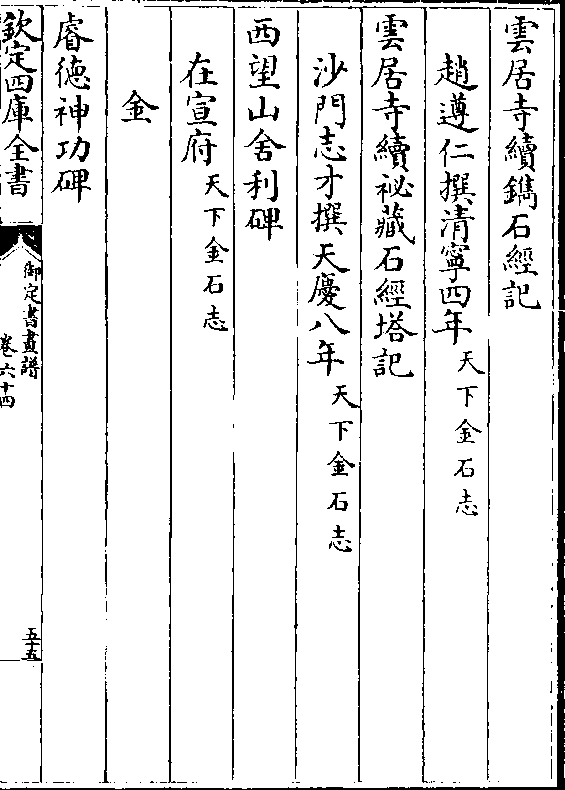 雲居寺續鐫石經記
趙遵仁撰清寧四年天下金石志
雲居寺續祕藏石經塔記
沙門志才撰天慶八年天下金石志
西望山舍利碑
在宣府天下金石志
金
睿徳神功碑
欽定四庫全書
御定書畫譜
卷六十四
五十五